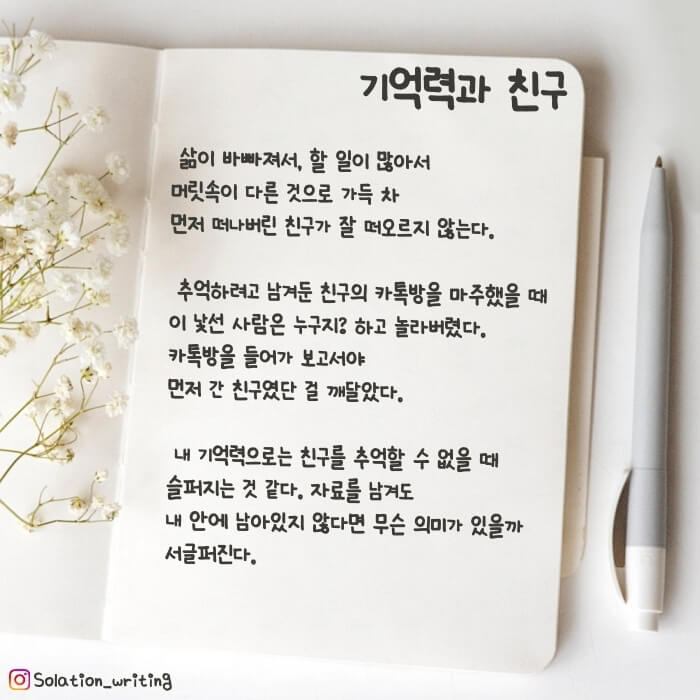 기억력과 친구
삶이 바빠져서, 할 일이 많아서
머릿속이 다른 것으로 가득 차
먼저 떠나버린 친구가 잘 떠오르지 않는다.
추억하려고 남겨둔 친구의 카톡방을 마주했을 때
이 낯선 사람은 누구지? 하고 놀라버렸다.
카톡방을 들어가 보고서야
먼저 간 친구였단 걸 깨달았다.
내 기억력으로는 친구를 추억할 수 없을 때
슬퍼지는 것 같다. 자료를 남겨도
내 안에 남아있지 않다면 무슨 의미가 있을까
서글퍼진다.
Solation_writing